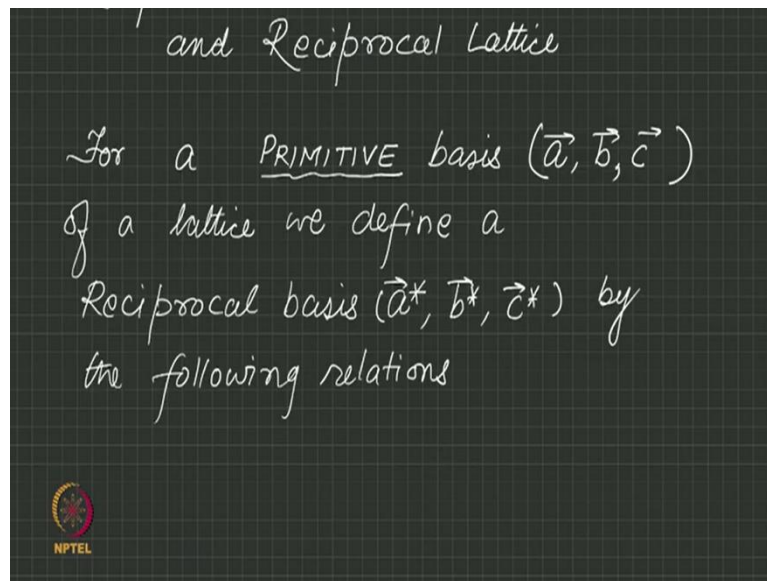 and Reciprocal Lattice
For a PRIMITIVE basis (a⃗, b⃗, c⃗)
of a lattice we define a
Reciprocal basis (a⃗*, b⃗*, c⃗*) by
the following relations
NPTEL